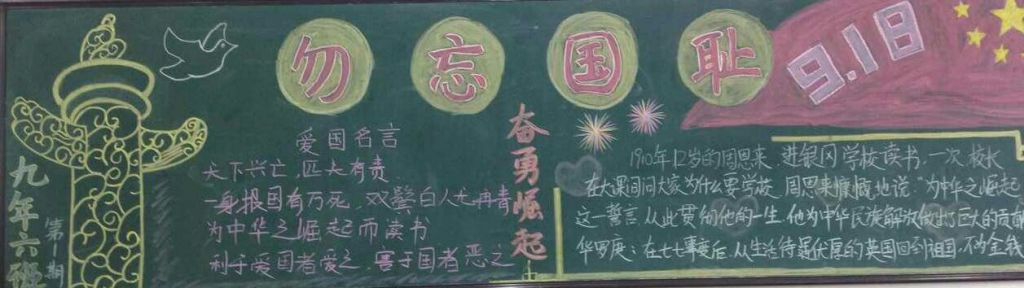 勿忘国耻
9.18
九年六班
第1期
爱国名言
天下兴亡，匹夫有责
一身报国有万死，双鬓白人无再青
为中华之崛起而读书
利于爱国者爱之，害于国者恶之
奋勇崛起
1910年12岁的周恩来，进银冈学校读书，一次校长
在大课间问大家为什么要学校，周恩来慷慨地说“为中华之崛起
这一誓言从此贯彻他的一生，他为中华民族解放做出了巨大的贡献
华罗庚：在七七事变后，从生活待遇优厚的英国回到祖国，不为金钱